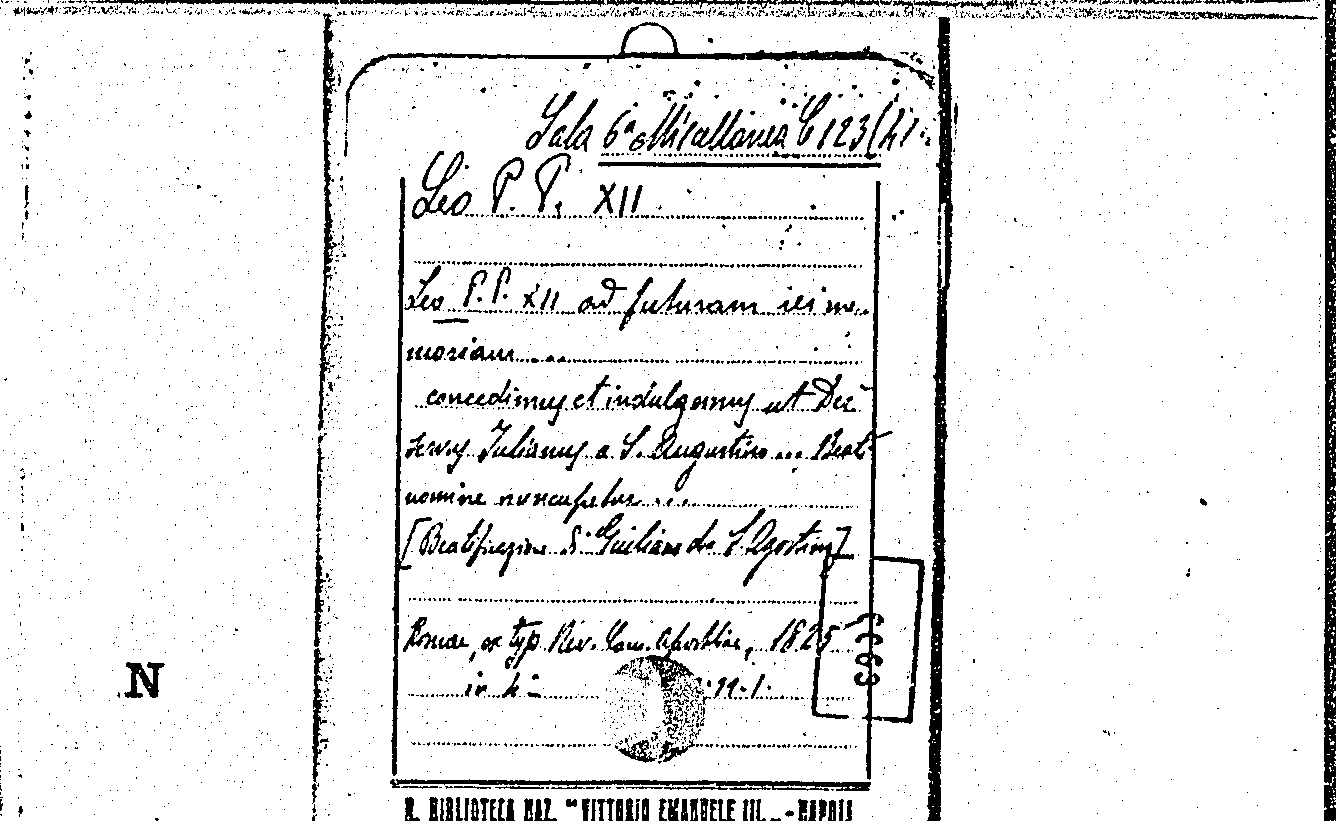 Sala 6ª Miscellanea C 123(41
Leo P. P. XII
Leo P.P. XII ad futuram rei me-
moriam ....
concedimus et indulgemus ut Dei
servus Julianus a S. Augustino ... Beati
nomine nuncupetur ...
[Beatificazione di Giuliano da S. Agostino]
Romae, ex typ. Rev. Cam. Apostolicae, 1825
in 4º
N
R. BIBLIOTECA NAZ. "VITTORIO EMANUELE III„ - NAPOLI